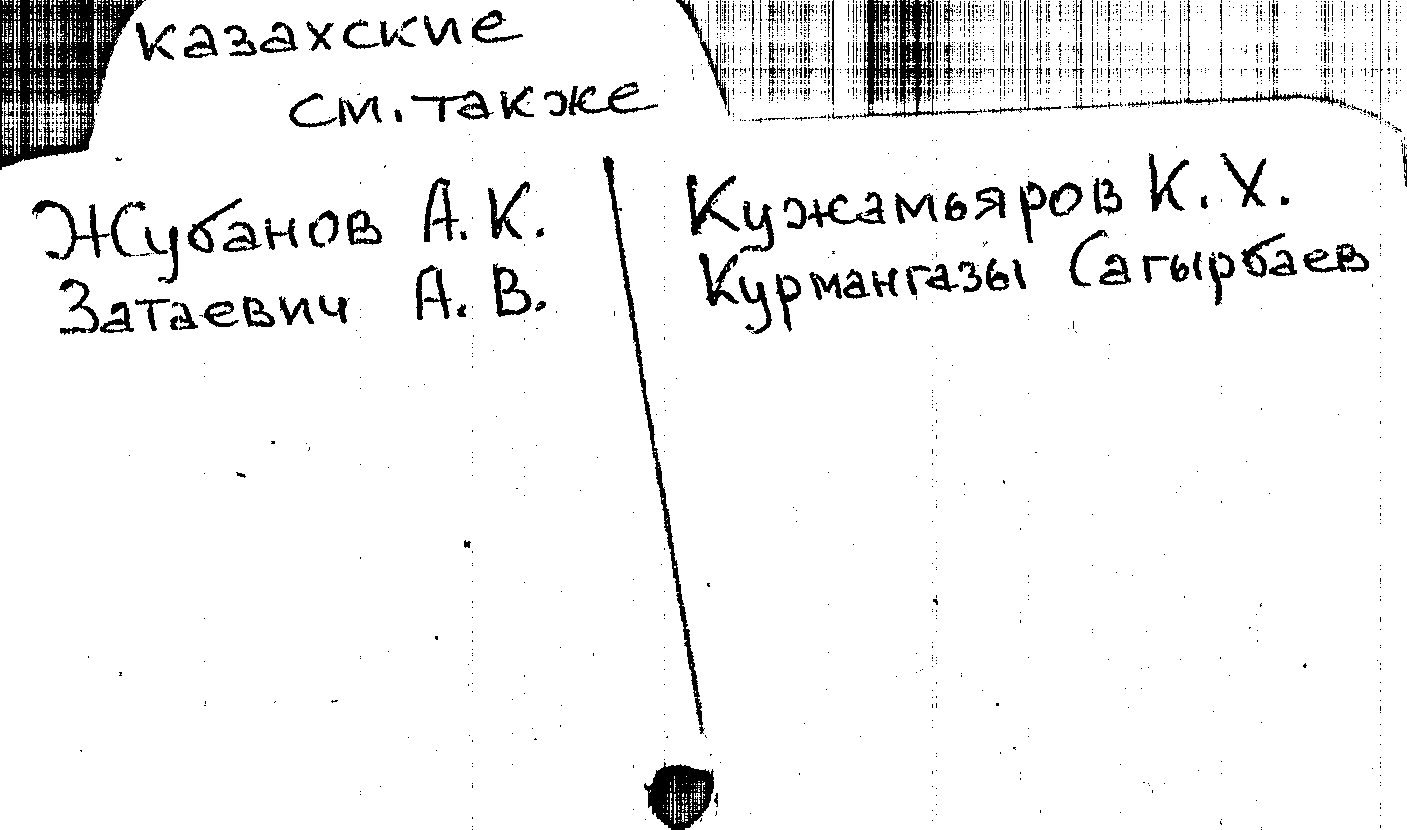 казахские
см. также
Жубанов А. К.
Затаевич А. В.
Кужамьяров К. Х.
Курмангазы Сагырбаев